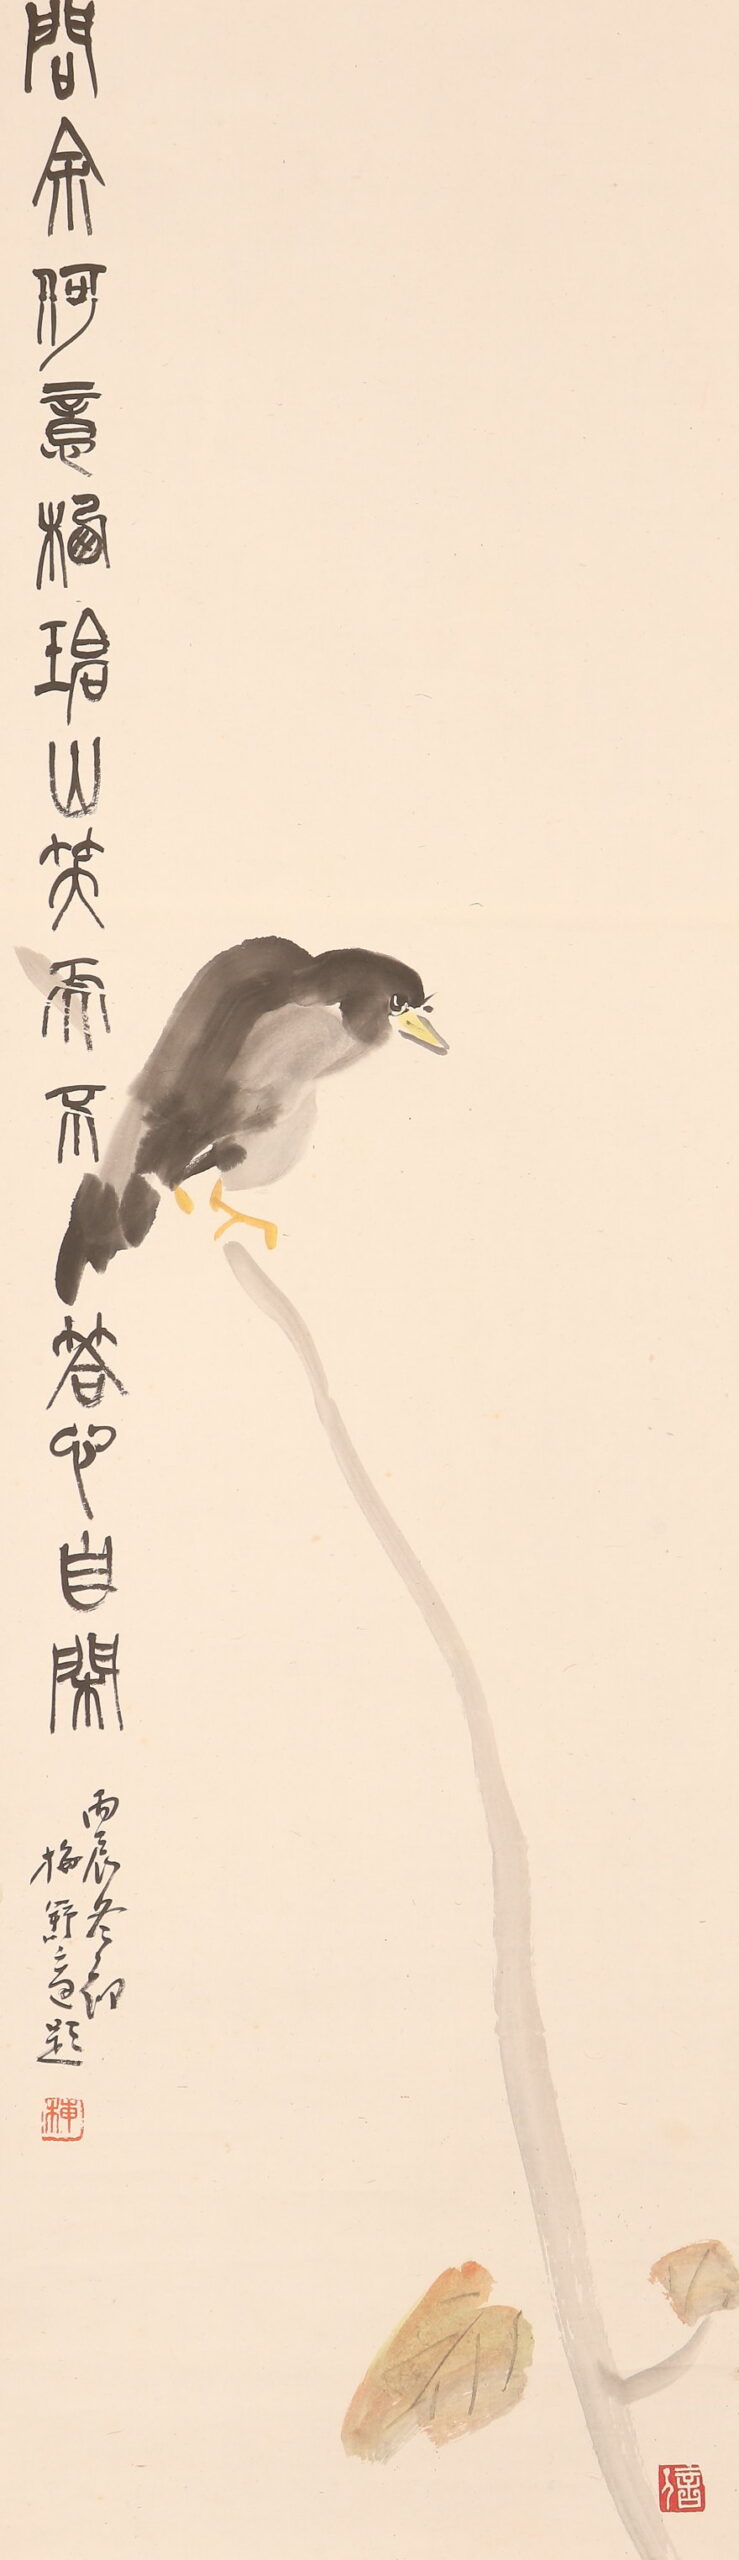 問余何意栖碧山笑而不答心自閑
丙辰冬
梅舒適題